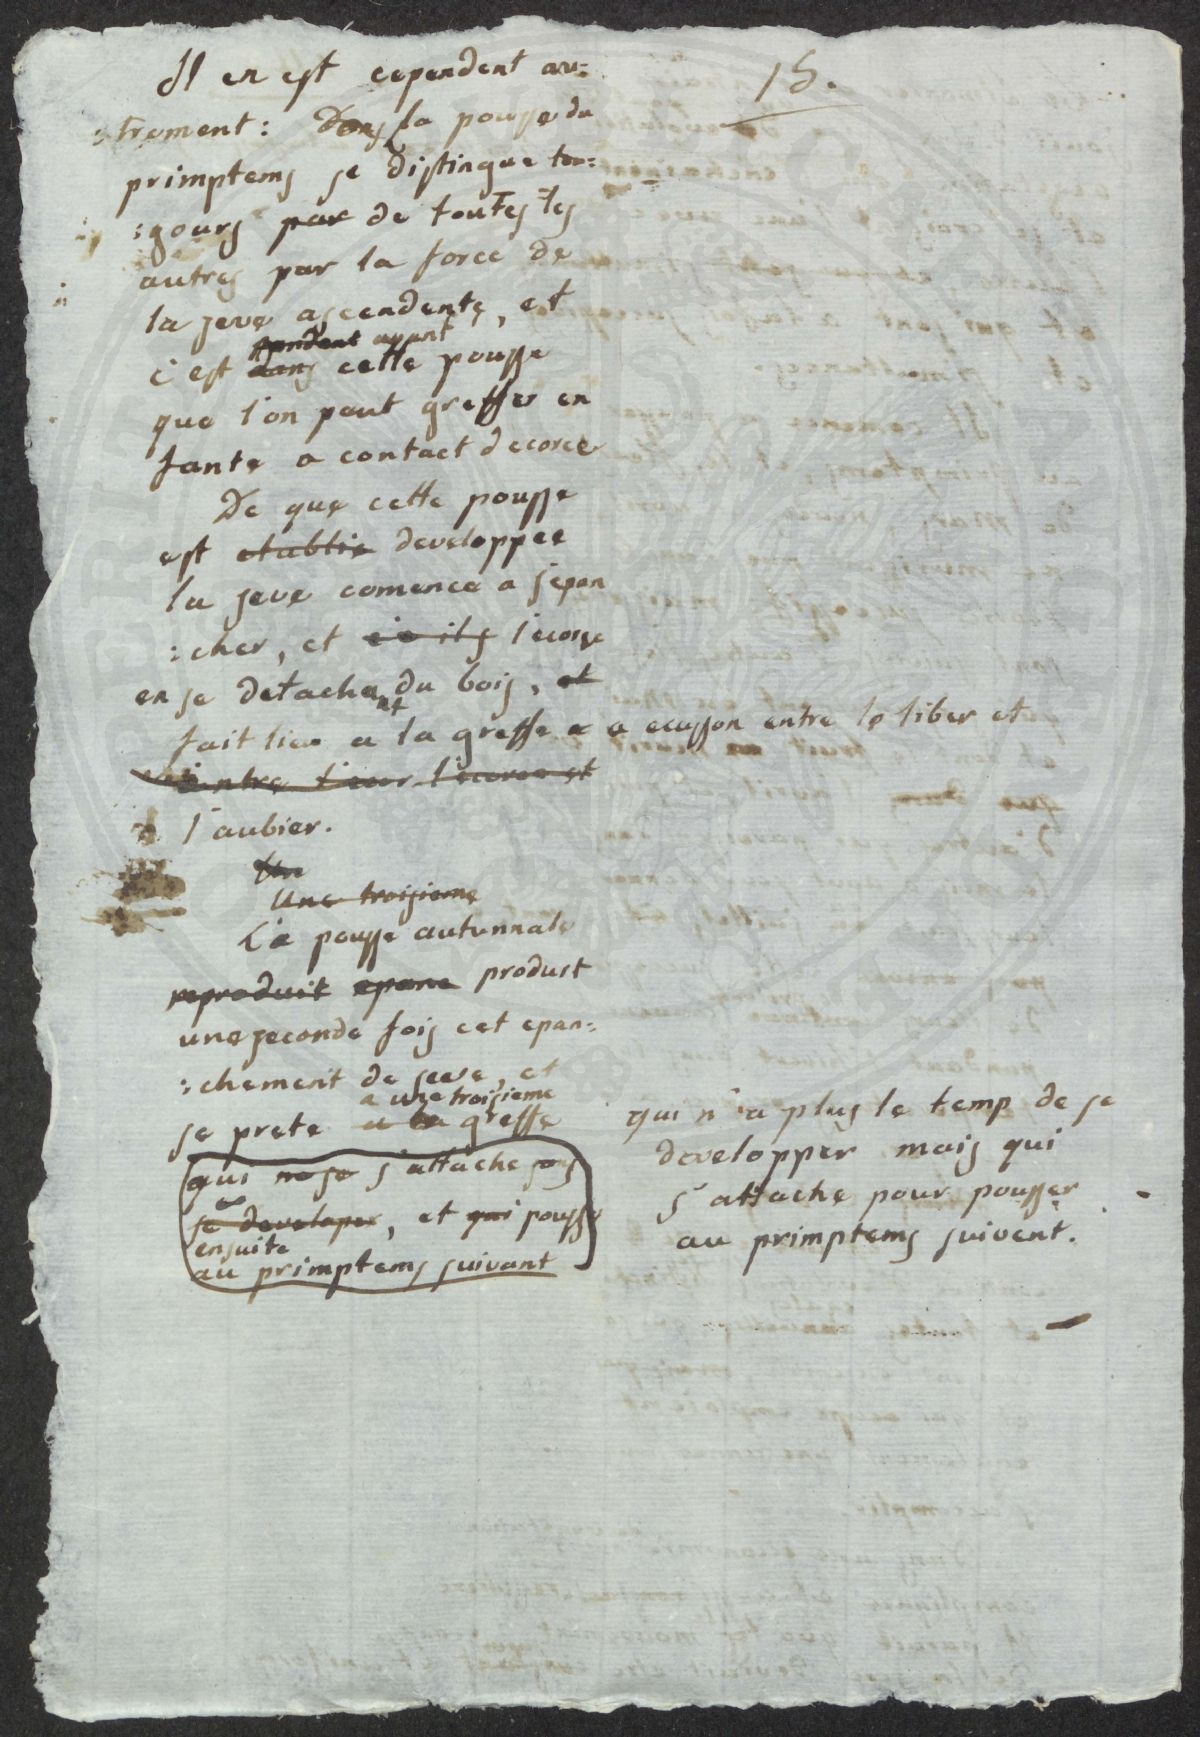 15.
Il en est cependent au=
:trement: Dans la pousse du
primptems se distingue tou=
:gours par de toutes les
autres par la force de
la seve ascendente, et
pendent avant
c'est dans cette pousse
que l'on peut greffer en
fante a contact d'ecorce
De que cette pousse
est etablie developpee
la seve comence a s'epan
:cher, et l'ecorse
en se detachant du bois, et
fait lieu a la greffe a a ecusson entre le liber et
entre l'ecorce et
l'aubier.
Une
Une troisieme
La pousse autunnale
reproduit epanc produit
une seconde fois cet epan=
:chement de seve, et
a une troisieme
se prete a la greffe
qui ne se s'attache sans
se developer, et qui pousse
ensuite
au primptems suivant
qui n'a plus le temp de se
developper mais qui
s'attache pour pousser
au primptems suivent.